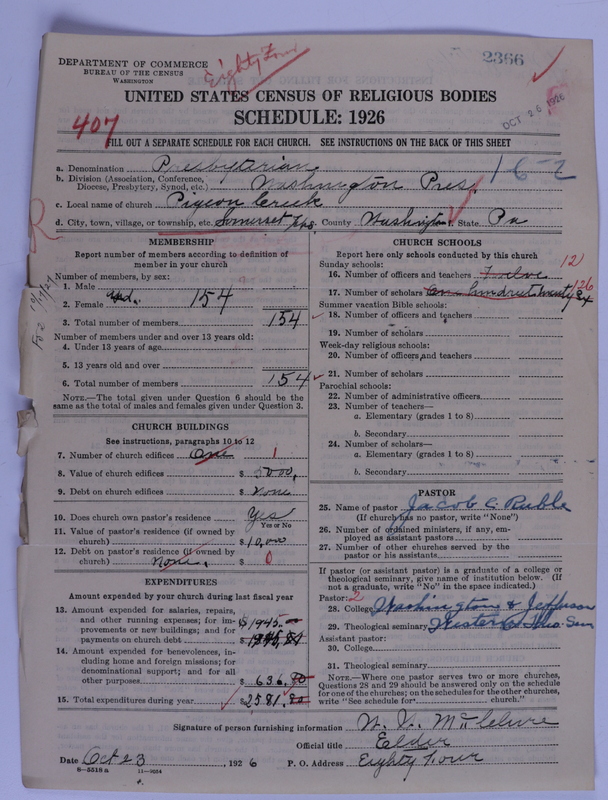 DEPARTMENT OF COMMERCE
BUREAU OF THE CENSUS
WASHINGTON
Eighty Four
2366
OCT 26 1926
UNITED STATES CENSUS OF RELIGIOUS BODIES
SCHEDULE: 1926
407
FILL OUT A SEPARATE SCHEDULE FOR EACH CHURCH. SEE INSTRUCTIONS ON THE BACK OF THIS SHEET
16-2
a. Denomination Presbyterian
b. Division (Association, Conference, Diocese, Presbytery, Synod, etc.) Washington Pres.
c. Local name of church Pigeon Creek
d. City, town, village, or township, etc. Somerset County Washington State Pa
R
MEMBERSHIP
Report number of members according to definition of
member in your church
Number of members, by sex:
1. Male
2. Female 154
3. Total number of members 154
Number of members under and over 13 years old:
4. Under 13 years of age
5. 13 years old and over
6. Total number of members 154
NOTE.—The total given under Question 6 should be
the same as the total of males and females given under Question 3.
CHURCH BUILDINGS
See instructions, paragraphs 10 to 12
7. Number of church edifices One 1
8. Value of church edifices $ 5000.
9. Debt on church edifices $ None
10. Does church own pastor's residence Yes
Yes or No
11. Value of pastor's residence (if owned by
church) $ 10,000
12. Debt on pastor's residence (if owned by
church) None. $ 0
EXPENDITURES
Amount expended by your church during last fiscal year
13. Amount expended for salaries, repairs,
and other running expenses; for im-
provements or new buildings; and for
payments on church debt $ 1945.
14. Amount expended for benevolences, in-
cluding home and foreign missions; for
denominational support; and for all
other purposes $ 636.
15. Total expenditures during year $ 2581.
CHURCH SCHOOLS
Report here only schools conducted by this church
Sunday schools:
16. Number of officers and teachers Twelve 12
17. Number of scholars One hundred twenty six 126
Summer vacation Bible schools:
18. Number of officers and teachers
19. Number of scholars
Week-day religious schools:
20. Number of officers and teachers
21. Number of scholars
Parochial schools:
22. Number of administrative officers
23. Number of teachers—
a. Elementary (grades 1 to 8)
b. Secondary
24. Number of scholars—
a. Elementary (grades 1 to 8)
b. Secondary
PASTOR
25. Name of pastor Jacob C. Ruble
(If church has no pastor, write "None")
26. Number of ordained ministers, if any, em-
ployed as assistant pastors
27. Number of other churches served by the
pastor or his assistants
If pastor (or assistant pastor) is a graduate of a college or
theological seminary, give name of institution below. (If
not a graduate, write "No" in the space indicated.)
Pastor: 2
28. College Washington & Jefferson
29. Theological seminary Western Theo. Sem
Assistant pastor:
30. College
31. Theological seminary
NOTE.—Where one pastor serves two or more churches,
Questions 28 and 29 should be answered only on the schedule
for one of the churches; on the schedules for the other churches,
write "See schedule for church."
Signature of person furnishing information
Official title Elder
Date Oct 23, 1926 P. O. Address Eighty Four
8—5518 a 11—9054